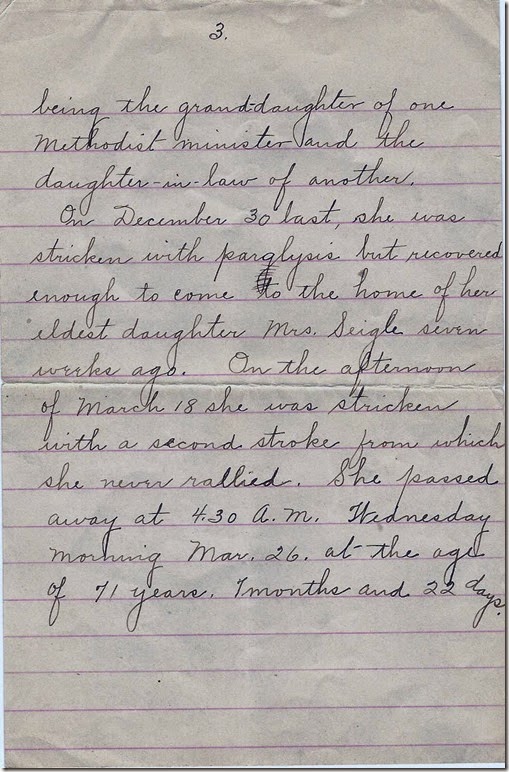 3.
being the grand-daughter of one
Methodist minister and the
daughter-in-law of another.
On December 30 last, she was
stricken with paralysis but recovered
enough to come to the home of her
eldest daughter Mrs. Seigle seven
weeks ago. On the afternoon
of March 18 she was stricken
with a second stroke from which
she never rallied. She passed
away at 4.30 A.M. Wednesday
morning Mar. 26. at the age
of 71 years, 7 months and 22 days.